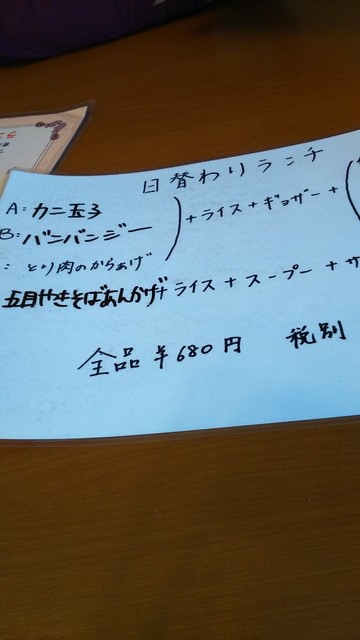 日替わりランチ
A：カニ玉子
B：バンバンジー
：とり肉のからあげ
+ライス+ギョザー+(
五目やきそばあんかげ+ライス+スープー+サ
全品￥680円 税別